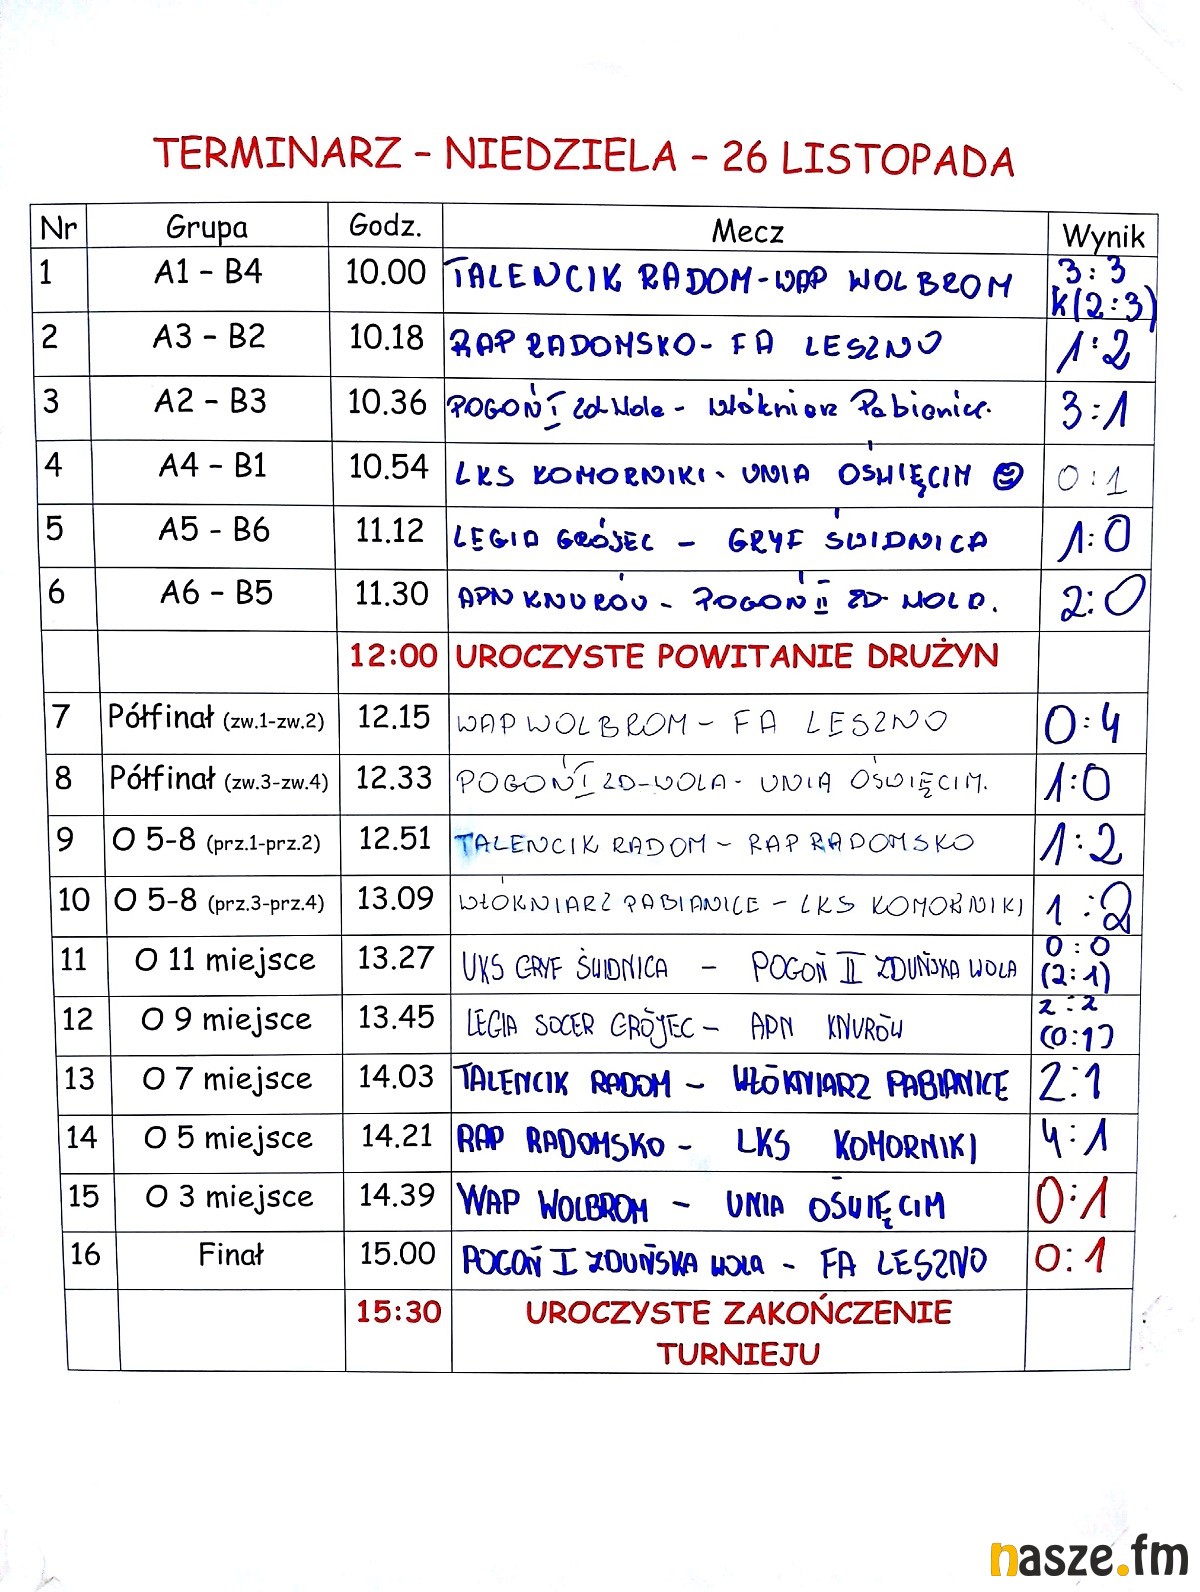 TERMINARZ - NIEDZIELA - 26 LISTOPADA
Nr Grupa Godz. Mecz Wynik
1 A1 - B4 10.00 TALENCIK RADOM - WAP WOLBROM 3:3 K(2:3)
2 A3 - B2 10.18 RAP RADOMSKO - FA LESZNO 1:2
3 A2 - B3 10.36 POGOŃ I Zd Wola - Włókniarz Pabianice. 3:1
4 A4 - B1 10.54 LKS KOMORNIKI - UNIA OŚWIĘCIM 0:1
5 A5 - B6 11.12 LEGIA GRÓJEC - GRYF ŚWIDNICA 1:0
6 A6 - B5 11.30 APN KNURÓW - POGOŃ II ZD WOLA. 2:0
12:00 UROCZYSTE POWITANIE DRUŻYN
7 Półfinał (zw.1-zw.2) 12.15 WAP WOLBROM - FA LESZNO 0:4
8 Półfinał (zw.3-zw.4) 12.33 POGOŃ I ZD-WOLA - UNIA OŚWIĘCIM. 1:0
9 O 5-8 (prz.1-prz.2) 12.51 TALENCIK RADOM - RAP RADOMSKO 1:2
10 O 5-8 (prz.3-prz.4) 13.09 WŁÓKNIARZ PABIANICE - LKS KOMORNIKI 1:2
11 O 11 miejsce 13.27 UKS GRYF ŚWIDNICA - POGOŃ II ZDUŃSKA WOLA 0:0 (2:1)
12 O 9 miejsce 13.45 LEGIA SOCER GRÓJEC - APN KNURÓW 2:2 (0:1)
13 O 7 miejsce 14.03 TALENCIK RADOM - WŁÓKNIARZ PABIANICE 2:1
14 O 5 miejsce 14.21 RAP RADOMSKO - LKS KOMORNIKI 4:1
15 O 3 miejsce 14.39 WAP WOLBROM - UNIA OŚWIĘCIM 0:1
16 Finał 15.00 POGOŃ I ZDUŃSKA WOLA - FA LESZNO 0:1
15:30 UROCZYSTE ZAKOŃCZENIE
TURNIEJU
nasze.fm